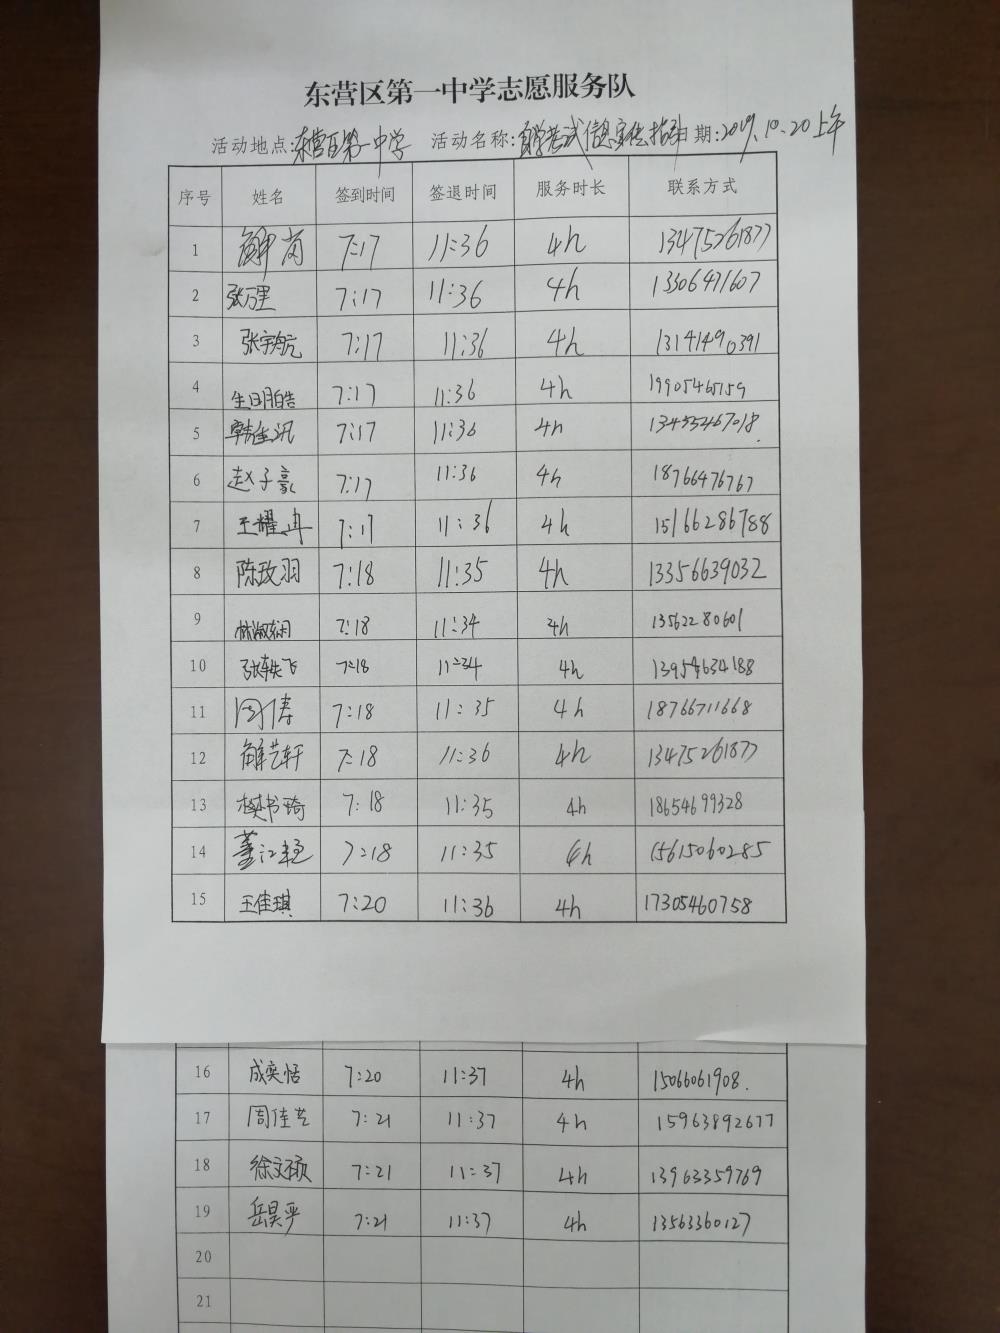 东营区第一中学志愿服务队
活动地点:东营区第一中学 活动名称:自学考试信息宣传指引 日期:2019.10.20上午
序号 姓名 签到时间 签退时间 服务时长 联系方式
1 解岗 7:17 11:36 4h 13475261877
2 张万里 7:17 11:36 4h 13306471607
3 张宇航 7:17 11:36 4h 13141490391
4 7:17 11:36 4h 19905465159
5 7:17 11:36 4h 13455467018.
6 赵子豪 7:17 11:36 4h 18766476767
7 王耀冉 7:17 11:36 4h 15166286788
8 陈玫羽 7:18 11:35 4h 13356639032
9 7:18 11:34 4h 13562280601
10 张轶飞 7:18 11:34 4h 13954634188
11 周涛 7:18 11:35 4h 18766711668
12 解艺轩 7:18 11:36 4h 13475261877
13 樊书琦 7:18 11:35 4h 18654699328
14 董江 7:18 11:35 4h 15615060285
15 王佳琪 7:20 11:36 4h 17305460758
16 成奕恬 7:20 11:37 4h 15066061908.
17 周佳艺 7:21 11:37 4h 15963892677
18 徐文硕 7:21 11:37 4h 13963359769
19 岳昊平 7:21 11:37 4h 13563360127
20
21